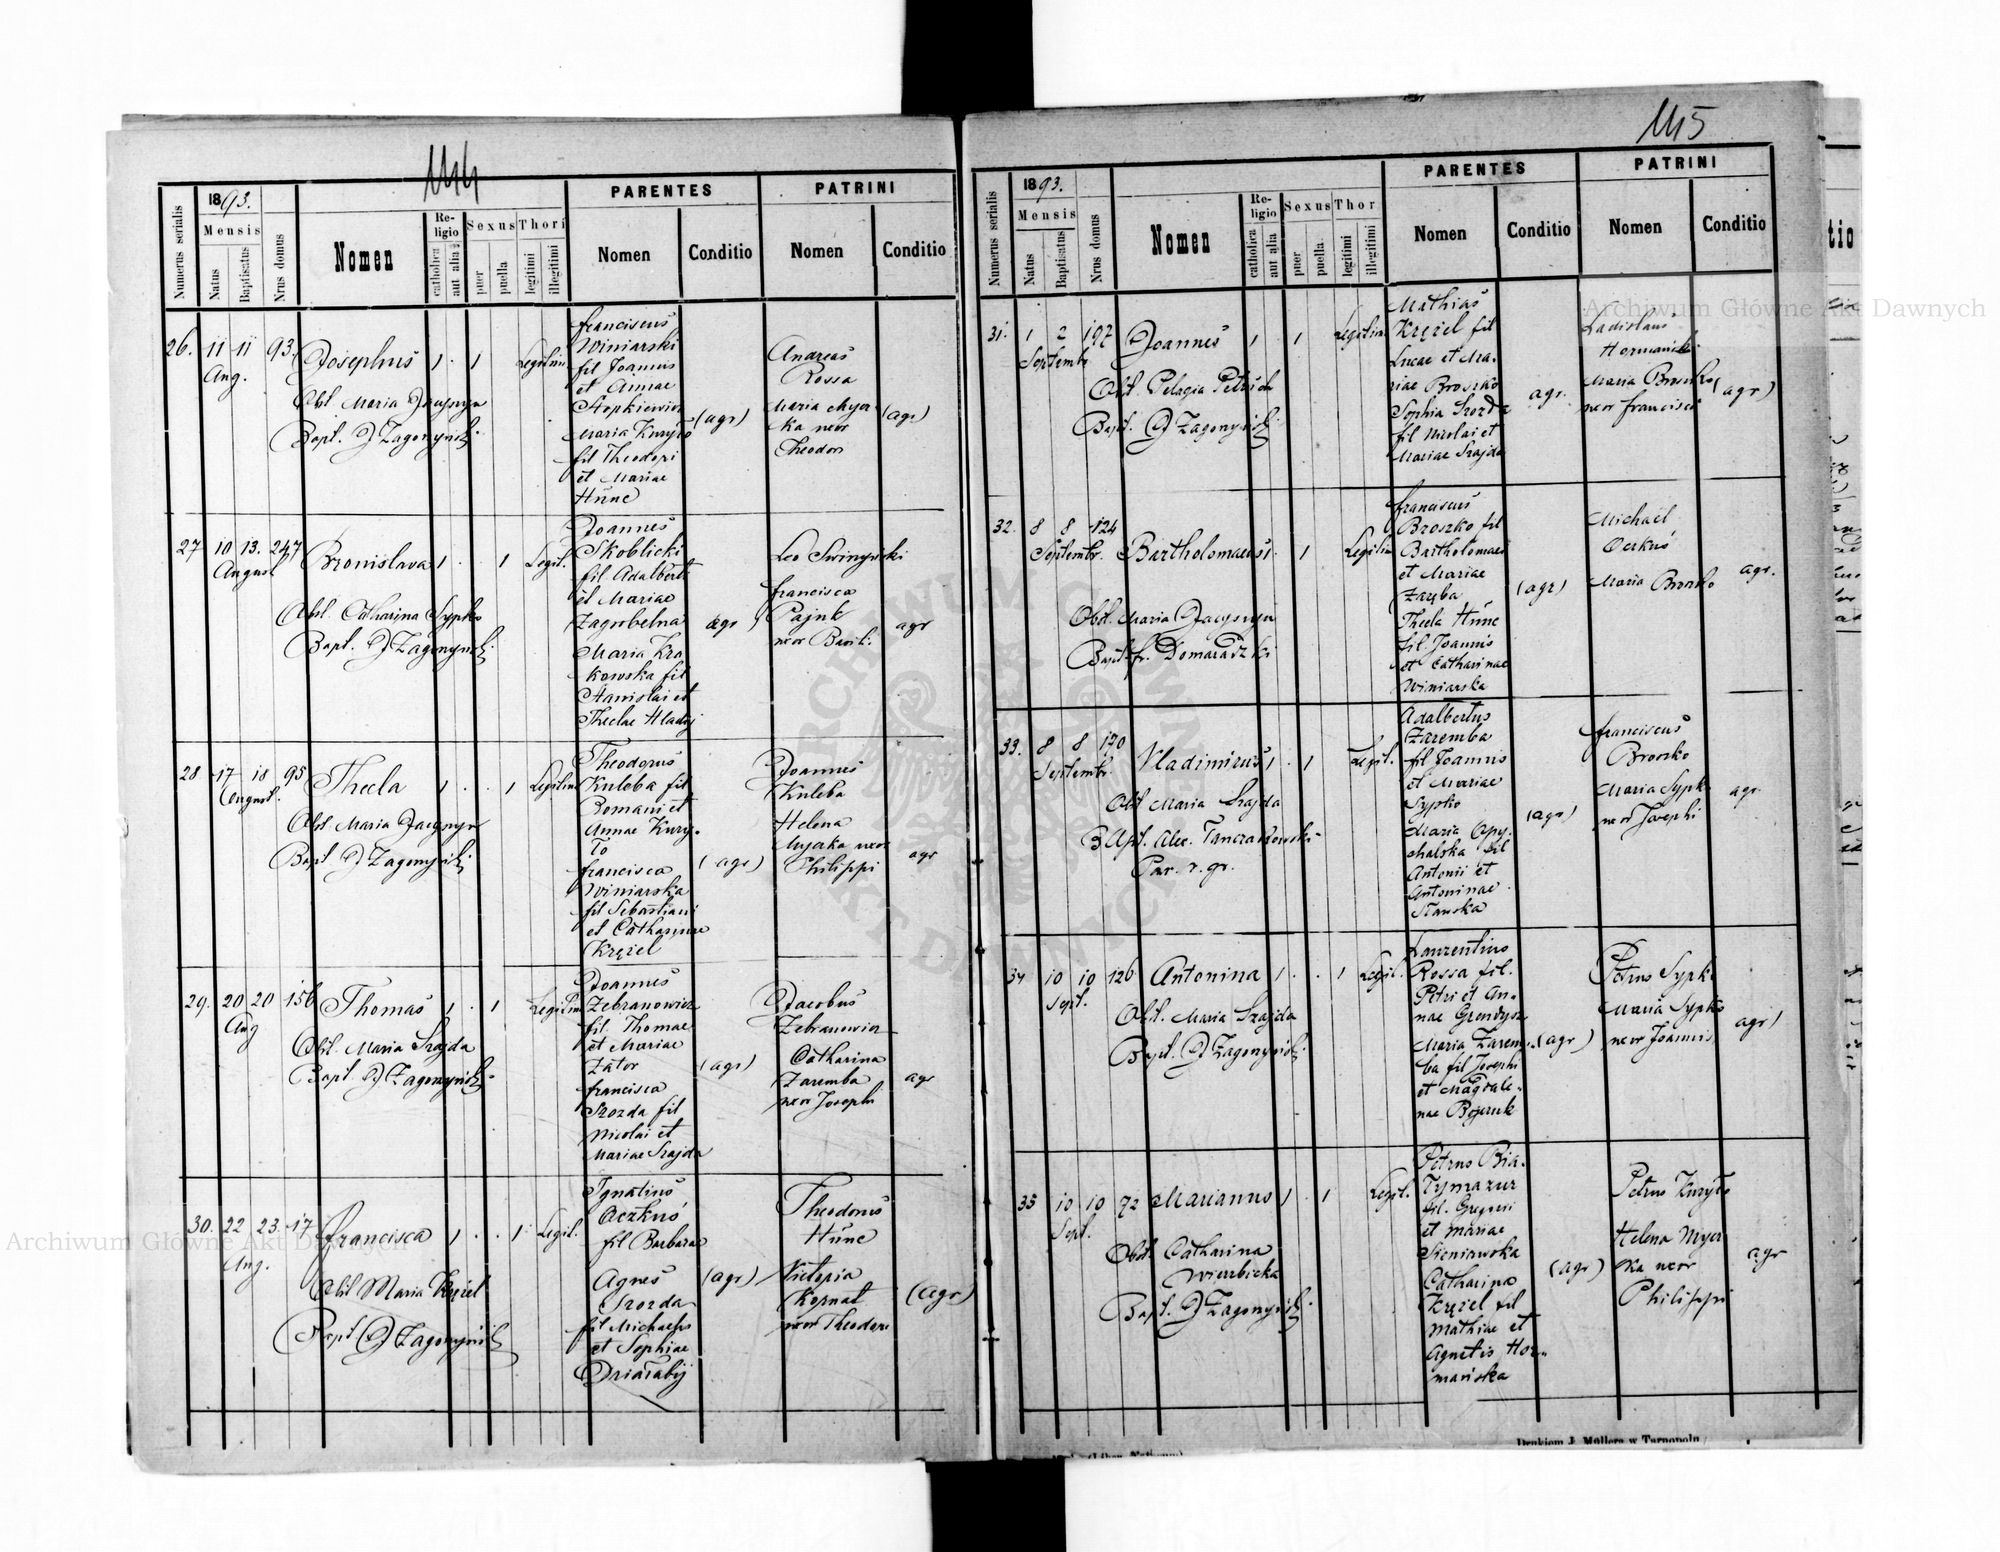 144
1893.
Numerus serialis
Mensis
Natus
Baptisatus
Nrus domus
Nomen
Religio
catholica
aut alia
Sexus
puer
puella
Thori
legitimi
illegitimi
PARENTES
Nomen
Conditio
PATRINI
Nomen
Conditio
26. 11 11 93. Josephus 1 . 1 Legitim
Aug.
Obst. Maria
Bapt. J Zagorzyński
Franciscus
Winiarski
fil Joannis
et Annae
Stopkiewicz
Maria Kuryło
fil Theodori
et Mariae
Hüne
(agr)
Andreas
Rossa
Maria
ka uxor
Theodori
(agr)
27 10 13. 247 Bronislava 1 . 1 Legit.
August
Obst. Catharina Sypko
Bapt. J Zagorzyński
Joannes
Skoblicki
fil Adalberti
et Mariae
Zagrobelna
Maria Kra
kowska fil
Stanislai et
Theclae Hladij
agr
Leo
Francisca
Pajuk
uxor Basili.
agr
28 17 18 95 Thecla 1 . . 1 Legitim
August.
Obst Maria
Bapt J Zagorzyński
Theodorus
Kuleba fil
Romani et
Annae Kury-
ło
Francisca
Winiarska
fil Sebastiani
et Catharinae
Kręzel
(agr)
Joannes
Kuleba
Helena
uxor
Philippi
agr
29. 20 20 156 Thomas 1 . 1 Legitim
Aug
Obst. Maria Szajda
Bapt J Zagorzyński
Joannes
Zebranowicz
fil. Thomae
et Mariae
Zator
Francisca
Szozda fil
Nicolai et
Mariae Szajda
(agr)
Jacobus
Zebranowicz
Catharina
Zaremba
uxor Josephi
agr
30. 22 23. 17 Francisca 1 . . 1 Legit.
Aug.
Obst Maria Kręzel
Bapt J Zagorzyński
Ignatius
Oczkuś
fil Barbarae
Agnes
Szozda
fil Michaelis
et Sophiae
Dziaľabij
(agr)
Theodorus
Hüne
Victoria
Kopnat
uxor Theodori
(agr)
145
1893.
Numerus serialis
Mensis
Natus
Baptisatus
Nrus domus
Nomen
Religio
catholica
aut alia
Sexus
puer
puella
Thor
legitimi
illegitimi
PARENTES
Nomen
Conditio
PATRINI
Nomen
Conditio
31. 1 2 197 Joannes 1 . 1 Legitim
Septembr
Obst. Pelagia
Bapt. J Zagorzyński
Mathias
Kręzel fil
Lucae et Ma-
riae Broszko
Sophia Szozda
fil Nicolai et
Mariae Szajda
agr.
Ladislaus
Maria Broszko
uxor Francisci
(agr)
32. 8 8 124 Bartholomaeus 1. 1 Legitim
Septembr.
Obst. Maria
Bapt. fr. Domaradzki
Franciscus
Broszko fil
Bartholomaei
et Mariae
Zaręba
Thecla Hüne
fil Joannis
et Catharinae
Winiarska
(agr)
Michael
Oczkuś
Maria Broszko
agr.
33. 8 8 170 Vladimirus 1 . 1 Legit.
Septembr.
Obst Maria Szajda
Bapt. Alex.
Par. r. gr.
Adalbertus
Zaremba
fil Joannis
et Mariae
Sypko
Maria Opy-
chalska fil
Antonii et
Antoninae
(agr)
Franciscus
Broszko
Maria Sypko
uxor Josephi
agr.
34 10 10 126 Antonina 1 . . 1 Legit.
Sept.
Obst. Maria Szajda
Bapt. J Zagorzyński
Laurentius
Rossa fil.
Petri et An-
nae
Maria Zarem-
ba fil Josephi
et Magdale-
nae
(agr)
Petrus Sypko
Maria Sypko
uxor Joannis
agr)
35 10 10 72 Marianus 1 . 1 Legit.
Sept.
Obst. Catharina
Wierzbicka
Bapt. J Zagorzyński
Petrus Bia-
łymazur
fil. Gregorii
et Mariae
Sieniawska
Catharina
Kręzel fil
Mathiae et
Agnetis Hor-
mańska
(agr)
Petrus Kuryło
Helena
ka uxor
Philippi
agr
Drukiem J. Müllera w Tarnopolu
Archiwum Główne Akt Dawnych
Archiwum Główne Akt Dawnych
ARCHIWUM GŁÓWNE AKT DAWNYCH